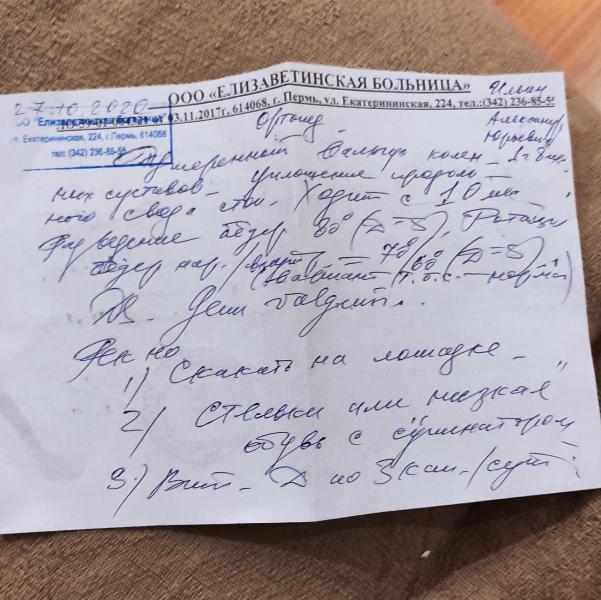 27.10.2020
ООО «ЕЛИЗАВЕТИНСКАЯ БОЛЬНИЦА»
03.11.2017г, 614068, г. Пермь, ул. Екатерининская, 224, тел.:(342) 236-85-55
ОО "Елизаветинская больница"
ул. Екатерининская, 224, г.Пермь, 614068
тел: (342) 236-85-55
Ортопед
Александр
Юрьевич
Умеренный вальгус колен-
ных суставов - уплощение продоль-
ного свода стоп. Ходит с 10 мес
Разведение бёдер 80° (D=S), Ротация
бедер нар./внутр. = 70°/60° (D=S)
(вариант т.б.с. - норма)
DS. Genu valgum.
Рек-но
1) Скакать на лошадке -
2) Стельки или низкая
обувь с супинатором
3) Вит. Д по 3 кап./сут